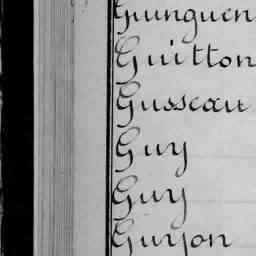 Guinguen
Guitton
Gusseau
Guy
Guy
Guyon